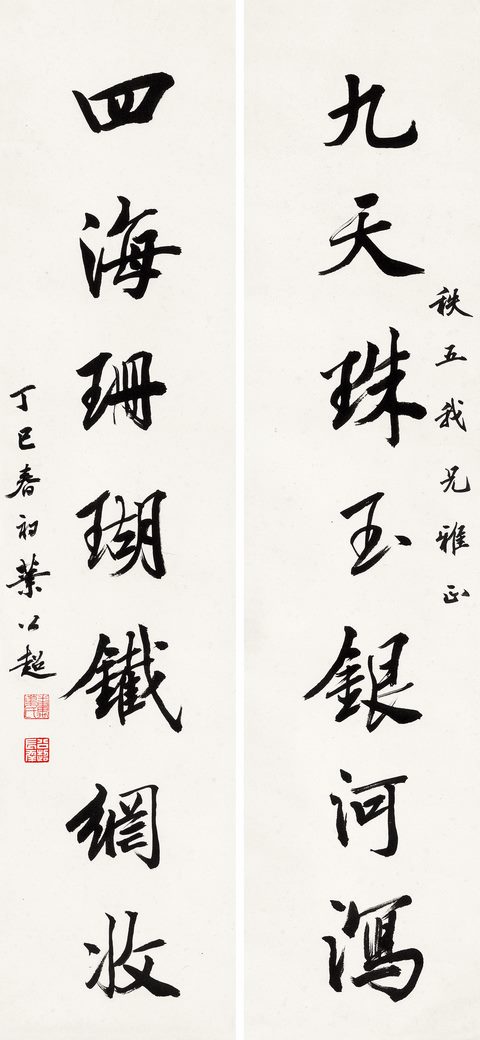 秩五我兄雅正
九天珠玉銀河瀉
四海珊瑚鐵網收
丁巳春初葉公超